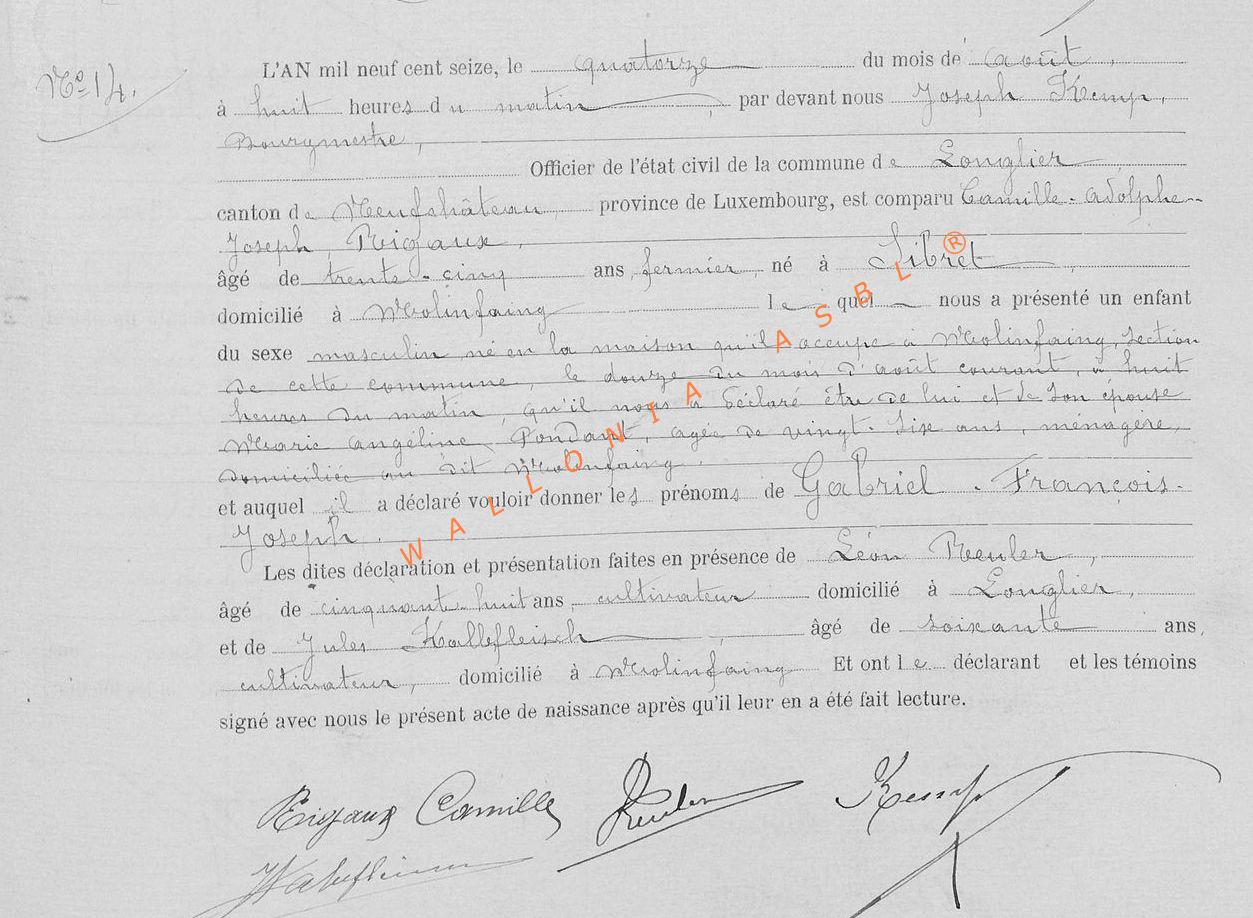 No 14.
L'AN mil neuf cent seize, le quatorze du mois de août,
à huit heures du matin, par devant nous Joseph Kemp,
Bourgmestre,
Officier de l'état civil de la commune de Longlier
canton de Neufchâteau province de Luxembourg, est comparu Camille-Adolphe-
Joseph Rigaux,
âgé de trente-cinq ans, fermier, né à Sibret,
domicilié à Molinfaing lequel nous a présenté un enfant
du sexe masculin, né en la maison qu'il occupe à Molinfaing, section
de cette commune, le douze du mois d'août courant, à huit
heures du matin, qu'il nous a déclaré être de lui et de son épouse
Marie Angéline Pondant, agée de vingt-six ans, ménagère,
domiciliée au dit Molinfaing.
et auquel il a déclaré vouloir donner les prénoms de Gabriel-François-
Joseph.
Les dites déclaration et présentation faites en présence de Léon Reuler,
âgé de cinquante-huit ans, cultivateur domicilié à Longlier,
et de Jules Kallefleisch, âgé de soixante ans,
cultivateur, domicilié à Molinfaing Et ont le déclarant et les témoins
signé avec nous le présent acte de naissance après qu'il leur en a été fait lecture.
Rigaux Camille Reuler Kemp
WALLONIA ASBL ®